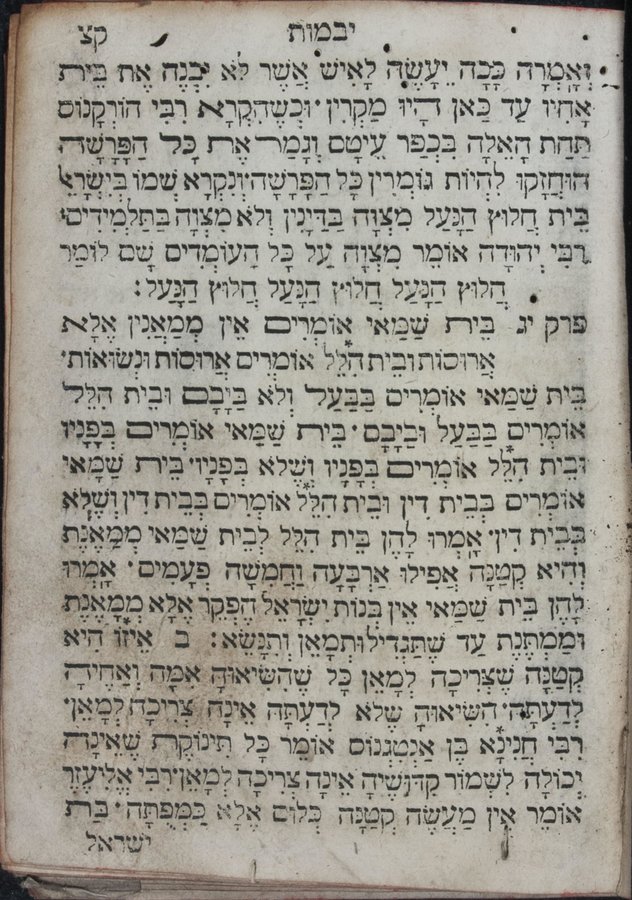 יבמות
קצ
וְאָמְרָה כָּכָה יֵעָשֶׂה לָאִישׁ אֲשֶׁר לֹא יִבְנֶה אֶת בֵּית
אָחִיו עַד כַּאן הָיוּ מַקְרִין · וּכְשֶׁהִקְרָא רִבִּי הוֹרְקָנוֹס
תַּחַת הָאֵלָה בִּכְפַר עֵיטָם וְגָמַר אֶת כָּל הַפָּרָשָׁה
הוּחְזָקוּ לִהְיוֹת גּוֹמְרִין כָּל הַפָּרָשָׁה · וְנִקְרָא שְׁמוֹ בְּיִשְׂרָאֵ
בֵּית חֲלוּץ הַנָּעַל מִצְוָה בַּדַּיָּנִין וְלֹא מִצְוָה בַּתַּלְמִידִים ·
רִבִּי יְהוּדָה אוֹמֵר מִצְוָה עַל כָּל הָעוֹמְדִים שָׁם לוֹמַר
חֲלוּץ הַנָּעַל חֲלוּץ הַנָּעַל חֲלוּץ הַנָּעַל :
פרק יג בֵּית שַׁמַּאי אוֹמְרִים אֵין מְמַאֲנִין אֶלָּא
אֲרוּסוֹת וּבֵית הִלֵּל אוֹמְרִים אֲרוּסוֹת וּנְשׂוּאוֹת ·
בֵּית שַׁמַּאי אוֹמְרִים בַּבַּעַל וְלֹא בַּיָּבָם וּבֵית הִלֵּל
אוֹמְרִים בַּבַּעַל וּבַיָּבָם · בֵּית שַׁמַּאי אוֹמְרִים בְּפָנָיו
וּבֵית הִלֵּל אוֹמְרִים בְּפָנָיו וְשֶׁלֹּא בְּפָנָיו · בֵּית שַׁמַּאי
אוֹמְרִים בְּבֵית דִּין וּבֵית הִלֵּל אוֹמְרִים בְּבֵית דִּין וְשֶׁלֹּא
בְּבֵית דִּין · אָמְרוּ לָהֶן בֵּית הִלֵּל לְבֵית שַׁמַּאי מְמָאֶנֶת
וְהִיא קְטַנָּה אֲפִילוּ אַרְבָּעָה וַחֲמִשָּׁה פְּעָמִים · אָמְרוּ
לָהֶן בֵּית שַׁמַּאי אֵין בְּנוֹת יִשְׂרָאֵל הֶפְקֵר אֶלָּא מְמָאֶנֶת
וּמַמְתֶּנֶת עַד שֶׁתַּגְדִּיל וּתְמָאֵן וְתִנָּשֵׂא : ב אֵיזוֹ הִיא
קְטַנָּה שֶׁצְּרִיכָה לְמָאֵן כָּל שֶׁהִשִּׂיאוּהָ אִמָּהּ וְאַחֶיהָ
לְדַעְתָּהּ · הִשִּׂיאוּהָ שֶׁלֹּא לְדַעְתָּהּ אֵינָהּ צְרִיכָה לְמָאֵן ·
רִבִּי חֲנִינָא בֶּן אַנְטִגְנוֹס אוֹמֵר כָּל תִּינוֹקֶת שֶׁאֵינָהּ
יְכוֹלָה לִשְׁמוֹר קִדּוּשֶׁיהָ אֵינָהּ צְרִיכָה לְמָאֵן · רִבִּי אֱלִיעֶזֶר
אוֹמֵר אֵין מַעֲשֵׂה קְטַנָּה כְּלוּם אֶלָּא כַּמְפֻתָּה · בַּת
ישראל